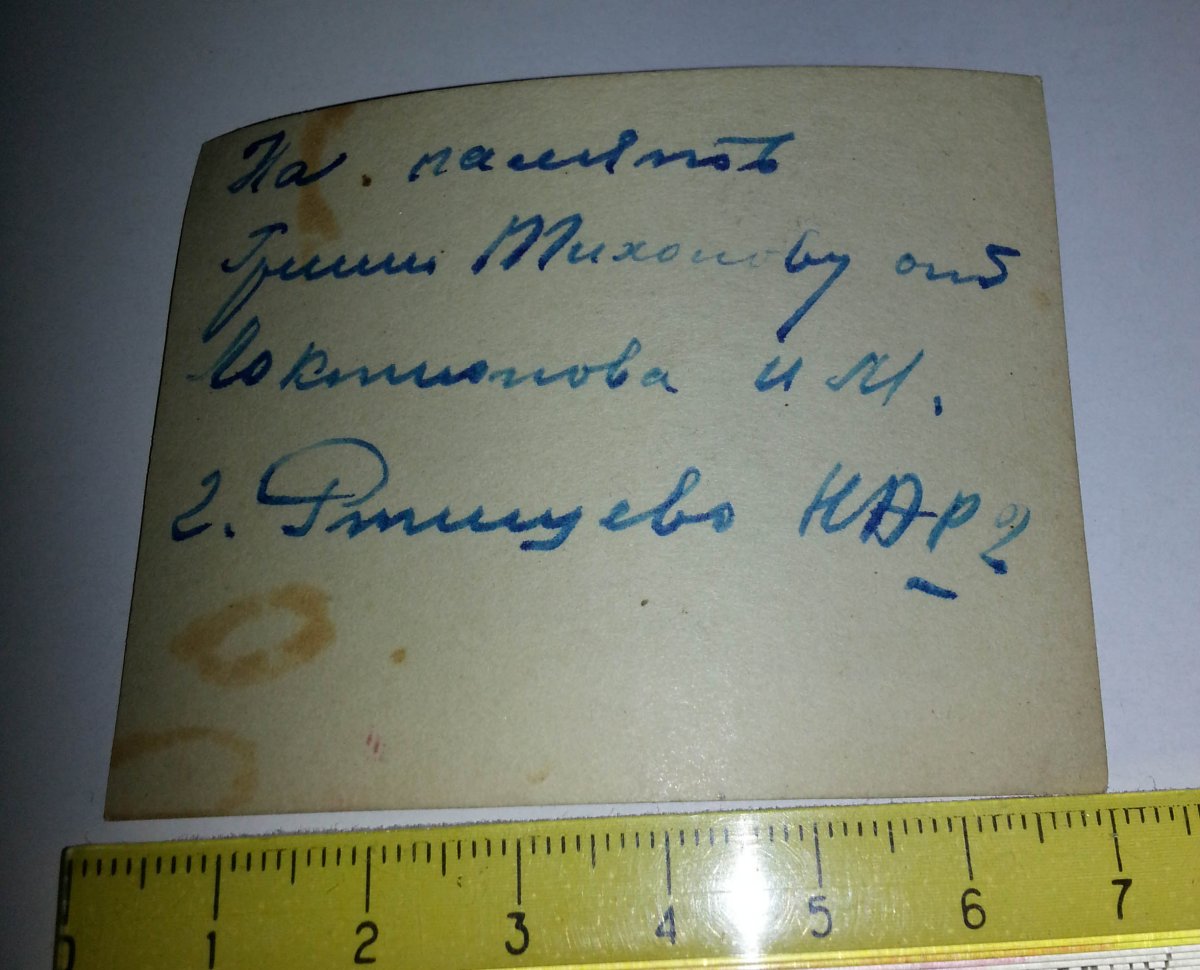 На память
Грише Тихонову от
Локтионова И М.
г. Ртищево НАРг
0 1 2 3 4 5 6 7